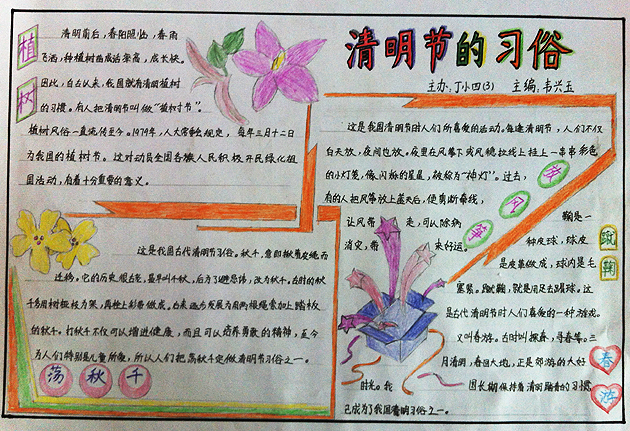 清明节的习俗
主办:丁小四(3) 主编:韦兴玉
植
树
清明前后，春阳照临，春雨
飞洒，种植树苗成活率高，成长快。
因此，自古以来，我国就有清明植树
的习惯。有人把清明节叫做“植树节”。
植树风俗一直流传至今。1979年，人大常委会规定，每年三月十二日
为我国的植树节。这对动员全国各族人民积极开展绿化祖
国活动，有着十分重要的意义。
这是我国古代清明节习俗。秋千，意即揪着皮绳而
迁移。它的历史很古老，最早叫千秋，后为了避忌讳，改为秋千。古时的秋
千多用树桠枝为架，再栓上彩带做成。后来逐步发展为用两根绳索加上踏板
的秋千。打秋千不仅可以增进健康，而且可以培养勇敢的精神，至今
为人们特别是儿童所爱，所以人们把荡秋千定做清明节习俗之一。
荡 秋 千
这是我国清明节时人们所喜爱的活动。每逢清明节，人们不仅
白天放，夜间也放。夜里在风筝下或风稳拉线上挂上一串串彩色
的小灯笼，像闪烁的星星，被称为“神灯”。过去，
有的人把风筝放上蓝天后，便剪断牵线，
让风带 走，可以除病
消灾，带 来好运。
筝 风 放
鞠是一
种皮球，球皮
是皮革做成，球内是毛
塞紧。蹴鞠，就是用足去踢球。这
是古代清明节时人们喜爱的一种游戏。
蹴
鞠
又叫春游。古时叫探春、寻春等。三
月清明，春回大地，正是郊游的大好
时光。我 国长期保持着清明踏青的习惯
已成为了我国清明习俗之一。
春
游